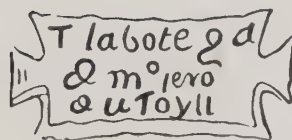 T labote g d
& m° iero
a u Toyll